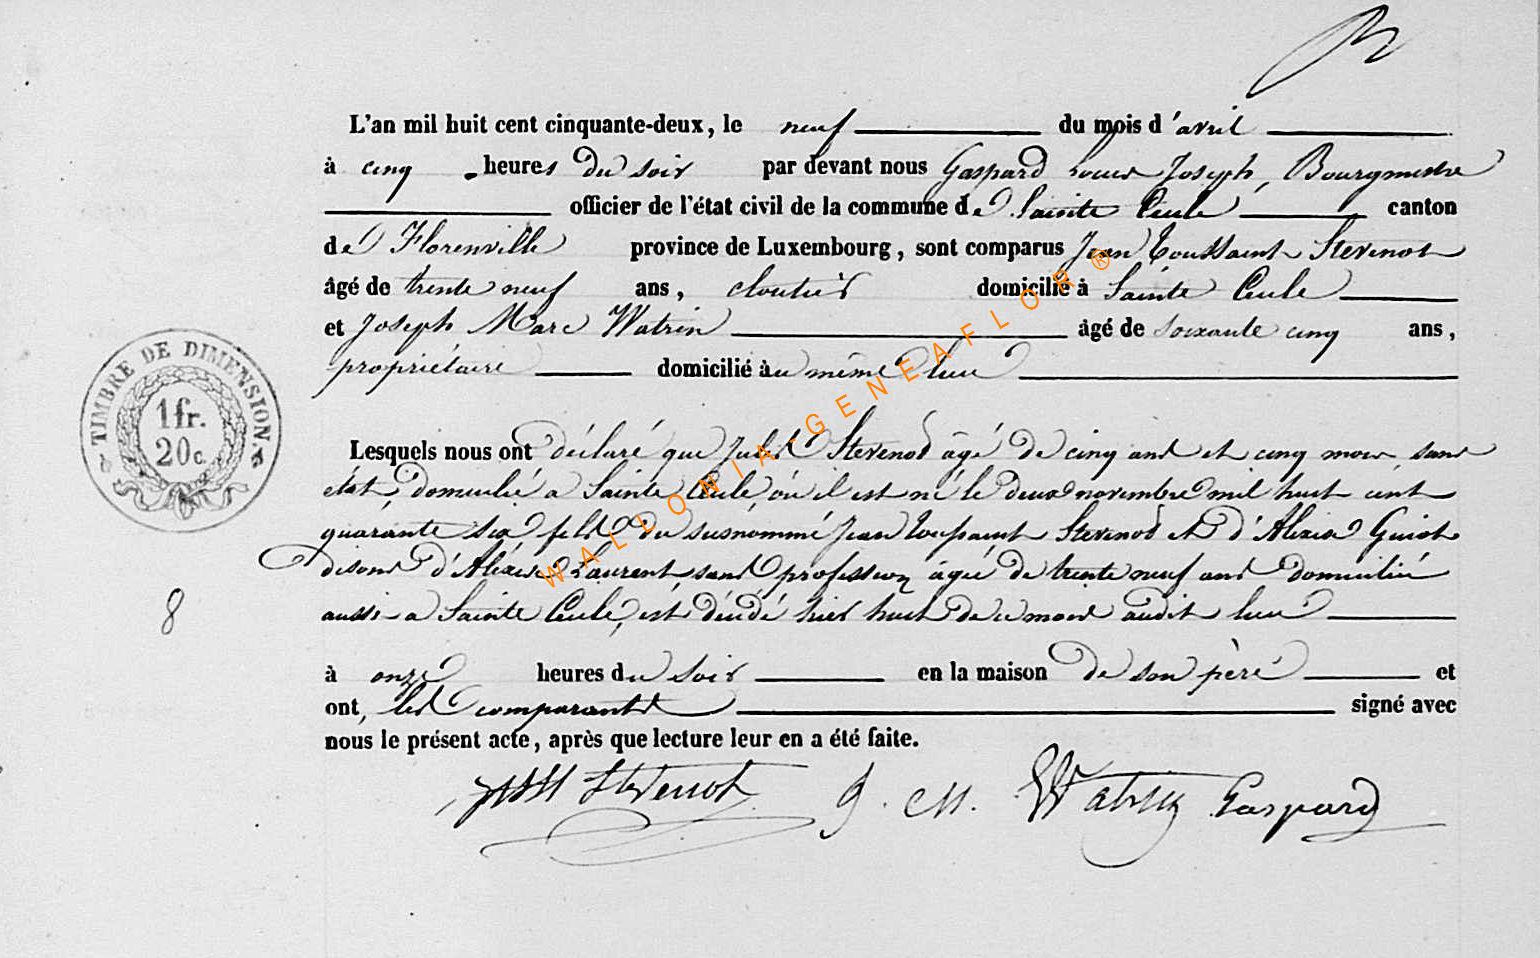 L'an mil huit cent cinquante-deux, le neuf du mois d'avril
à cinq heures du soir par devant nous Gaspard Louis Joseph, Bourgmestre
officier de l'état civil de la commune de Sainte Cecile canton
de Florenville province de Luxembourg, sont comparus Jean Toussaint Stevenot
âgé de trente neuf ans, cloutier domicilié à Sainte Cecile
et Joseph Marc Watrin âgé de soixante cinq ans,
propriétaire domicilié au même lieu
TIMBRE DE DIMENSION.
1fr.
20c.
Lesquels nous ont déclaré que Jules Stevenot âgé de cinq ans et cinq mois sans
état, domicilié a Sainte Cecile, où il est né le deux novembre mil huit cent
quarante six fils du susnommé Jean Toussaint Stevenot et d'Alexise Guiot
disons d'Aléxise Laurent sans profession âgée de trente neuf ans domiciliée
aussi a Sainte Cecile, est décédé hier huit de ce mois audit lieu
8
à onze heures du soir en la maison de son père et
ont, les comparants signé avec
nous le présent acte, après que lecture leur en a été faite.
Stevenot J. M. Watrin Gaspard
WALLONIA-GENEAFLOR®